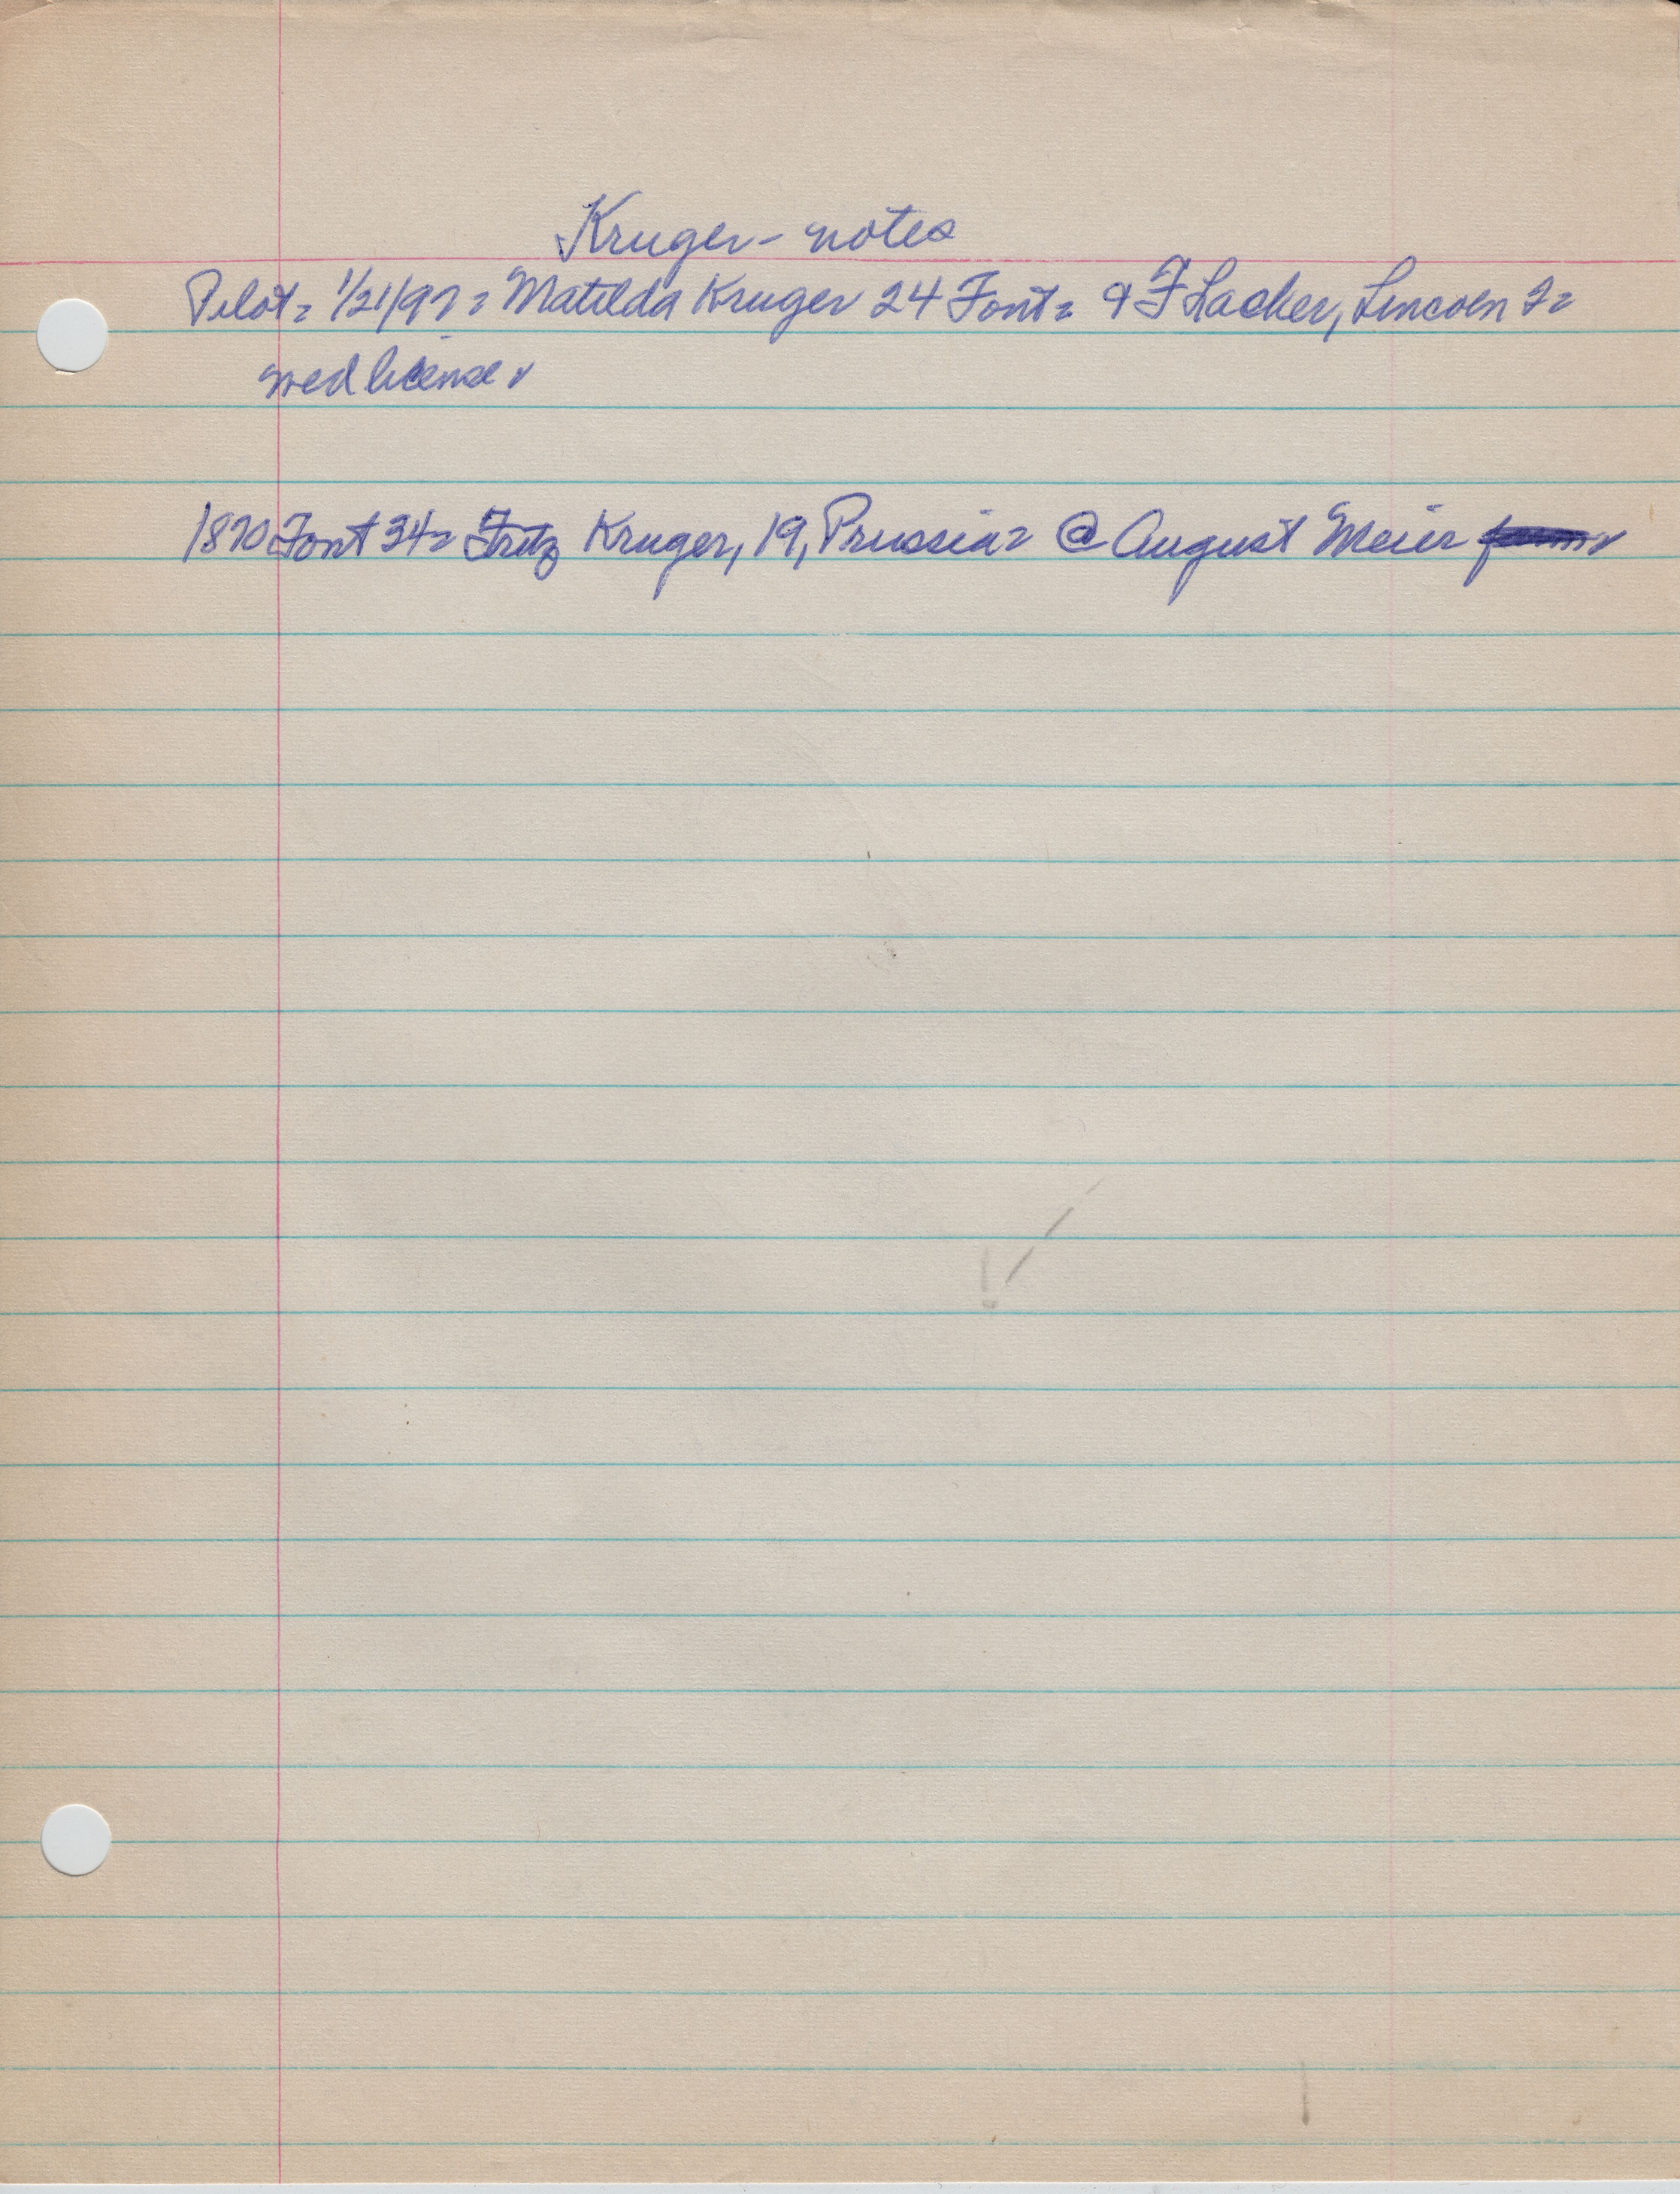 Kruger - notes
Pilot = 1/21/97 = Matilda Kruger 24 Font = & F Lacher, Lincoln 2 =
wed license ✓
1870 Font 34 = Fritz Kruger, 19, Prussia = @ August Meier